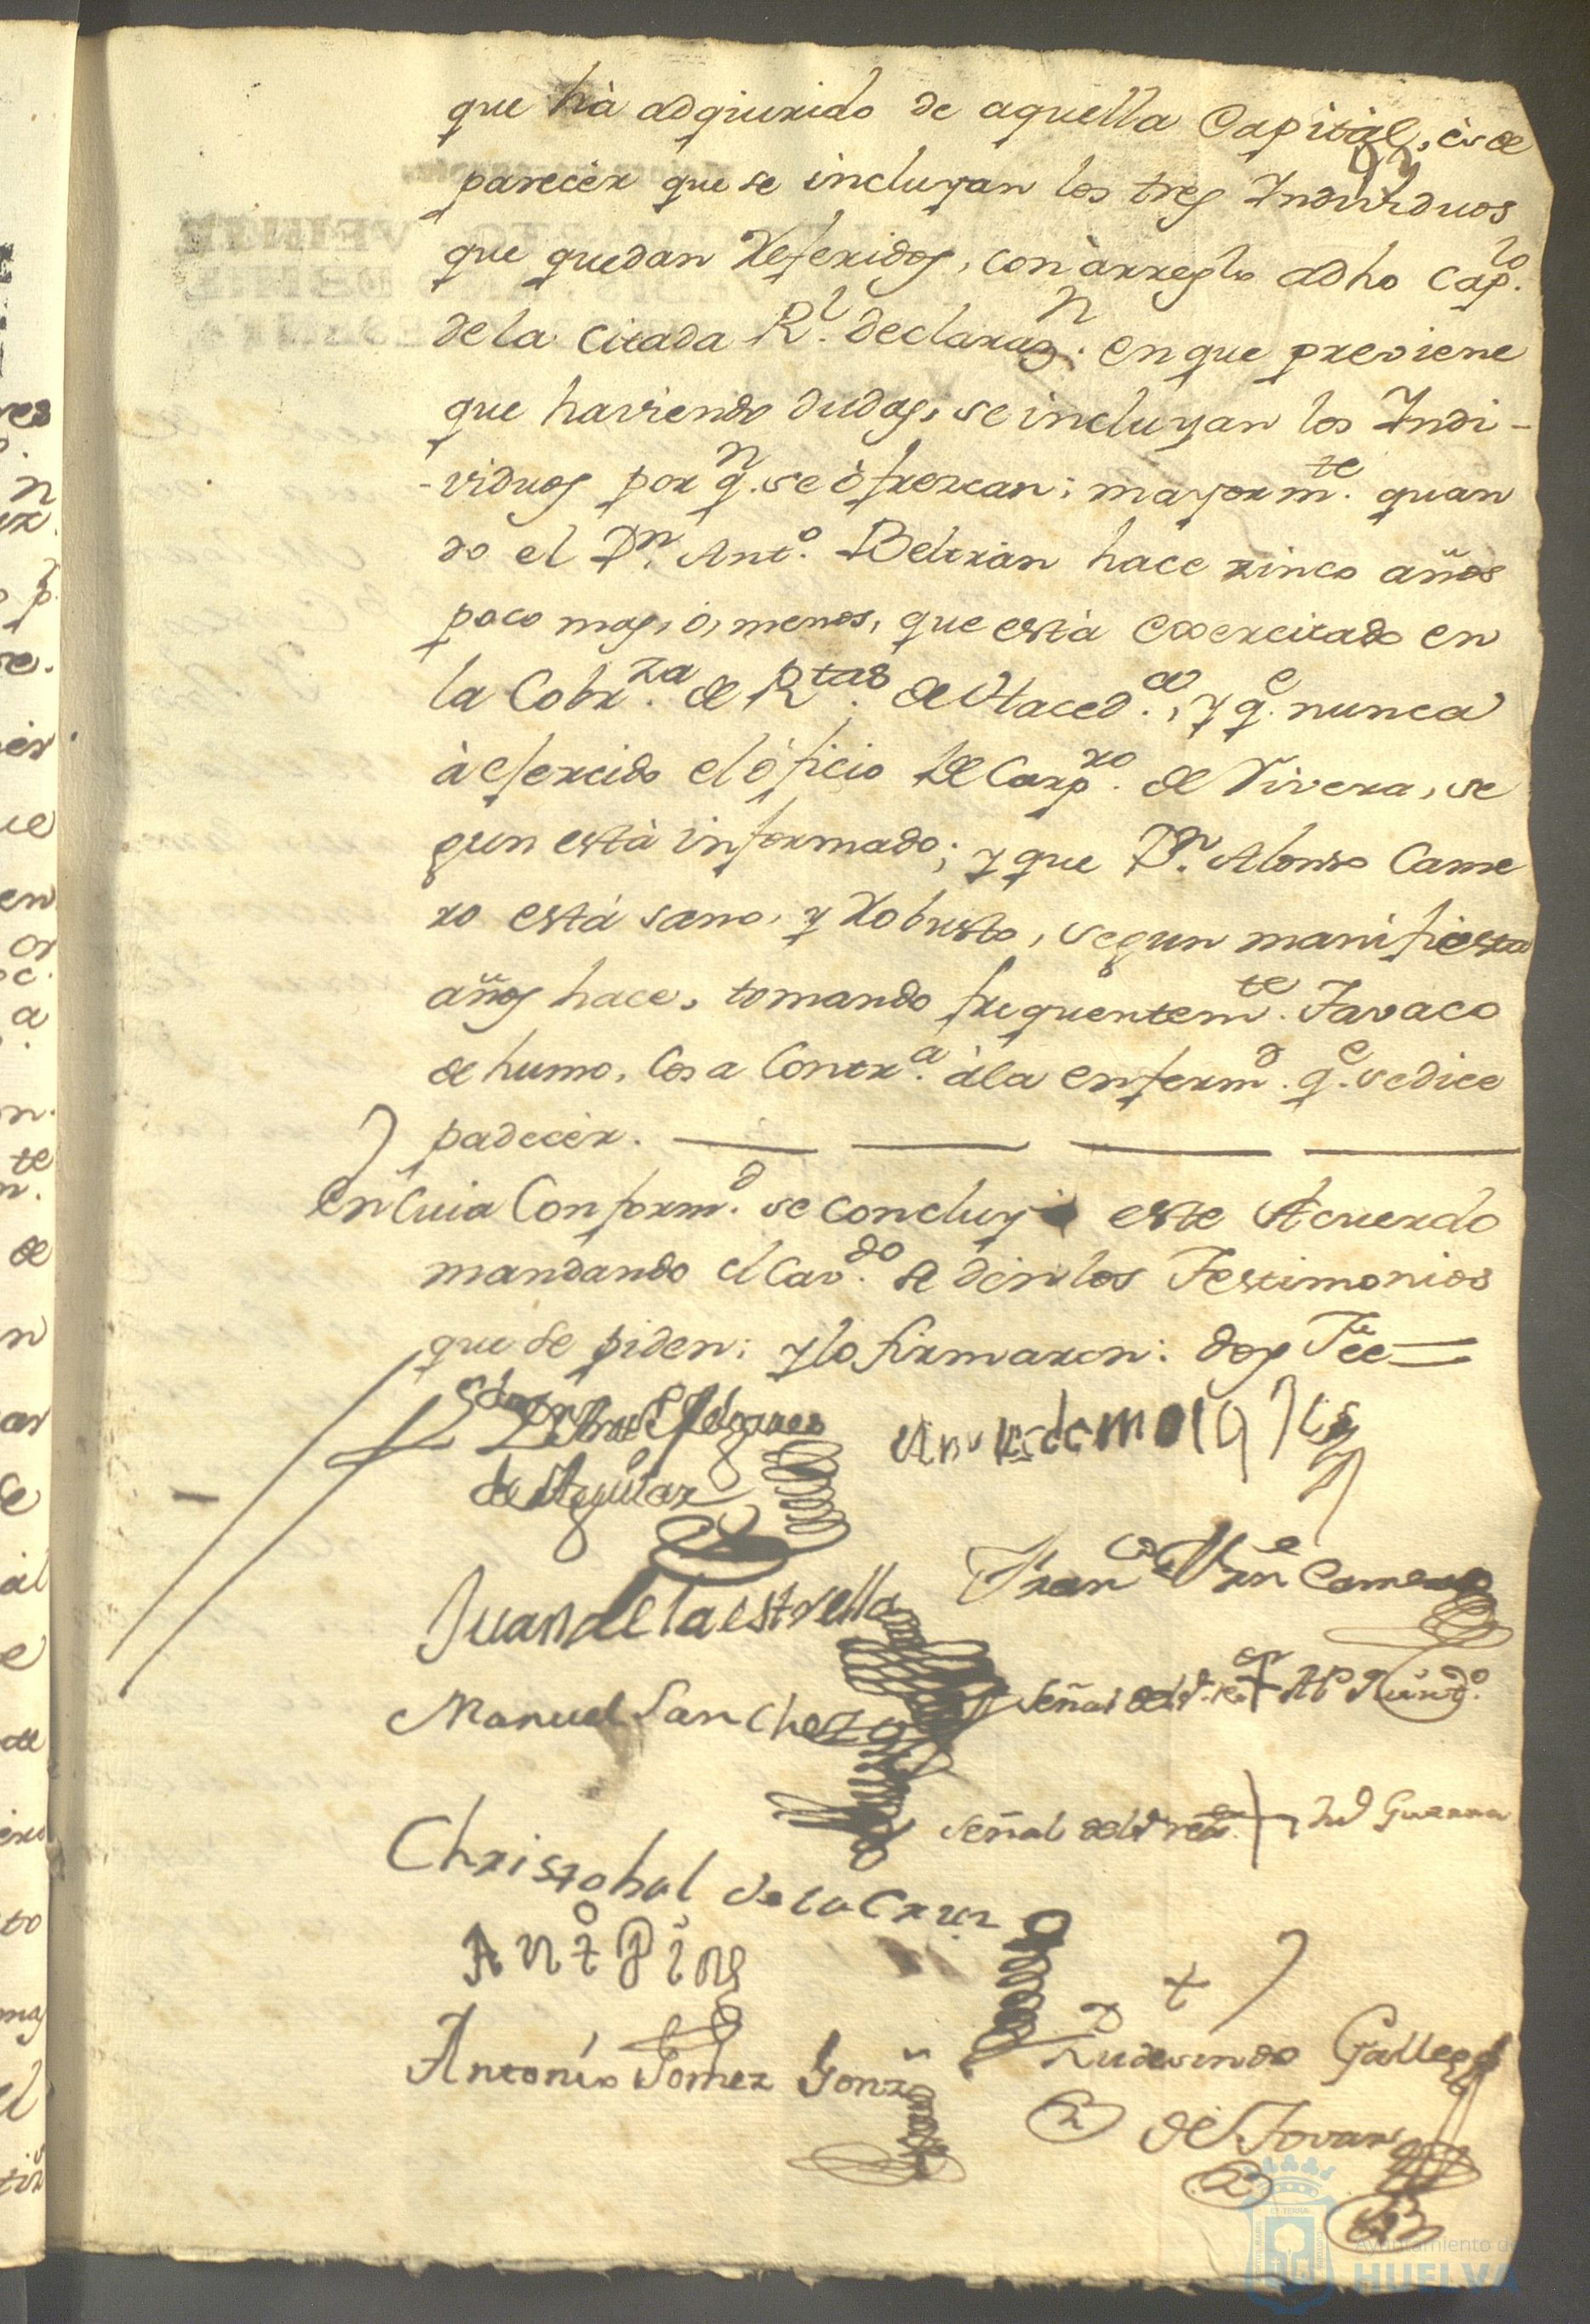 que hà adqiurido de aquella Capitàl, ès de
parecèr que se incluyan los tres Individuos
que quedan Referidos, con àrreglo adho Cap.lo
de la Citada R.l declaraz.n en que previene
que haviendo dudas, se incluyan los Indi-
-viduos por q.n se òfrezcan; mayorm.te quan
do el D.n Ant.o Beltràn hace zinco años
poco mas, ò, menos, que està exercitado en
la Cobr.za de R.tas de Haced.a, y q.e nunca
à ejercido el òficio de Carp.ro de Rivera, se
gun està informado; y que D.n Alonso Came
ro està sano, y Robusto, segun manifiesta
años hace, tomando frequentem.te Tavaco
de humo, Cosa Contr.a àla enferm.d q.e se dice
padecèr.
En Cuia Conform.d se concluyò este Acuerdo
mandando el Cav.do se dèn los Testimonios
que se piden; y lo firmaron: doy Fèe
de Aguilar
Juan de la estrella
Fran.co Camero
Manuel Sanchez
Señal del S.r
Señal del S.r Guerra
Christobal de la Cruz
Ant.o Pin
Antonio Gomez Gonz
Rudesindo Gallego
de Tovar
Ayuntamiento de
HUELVA